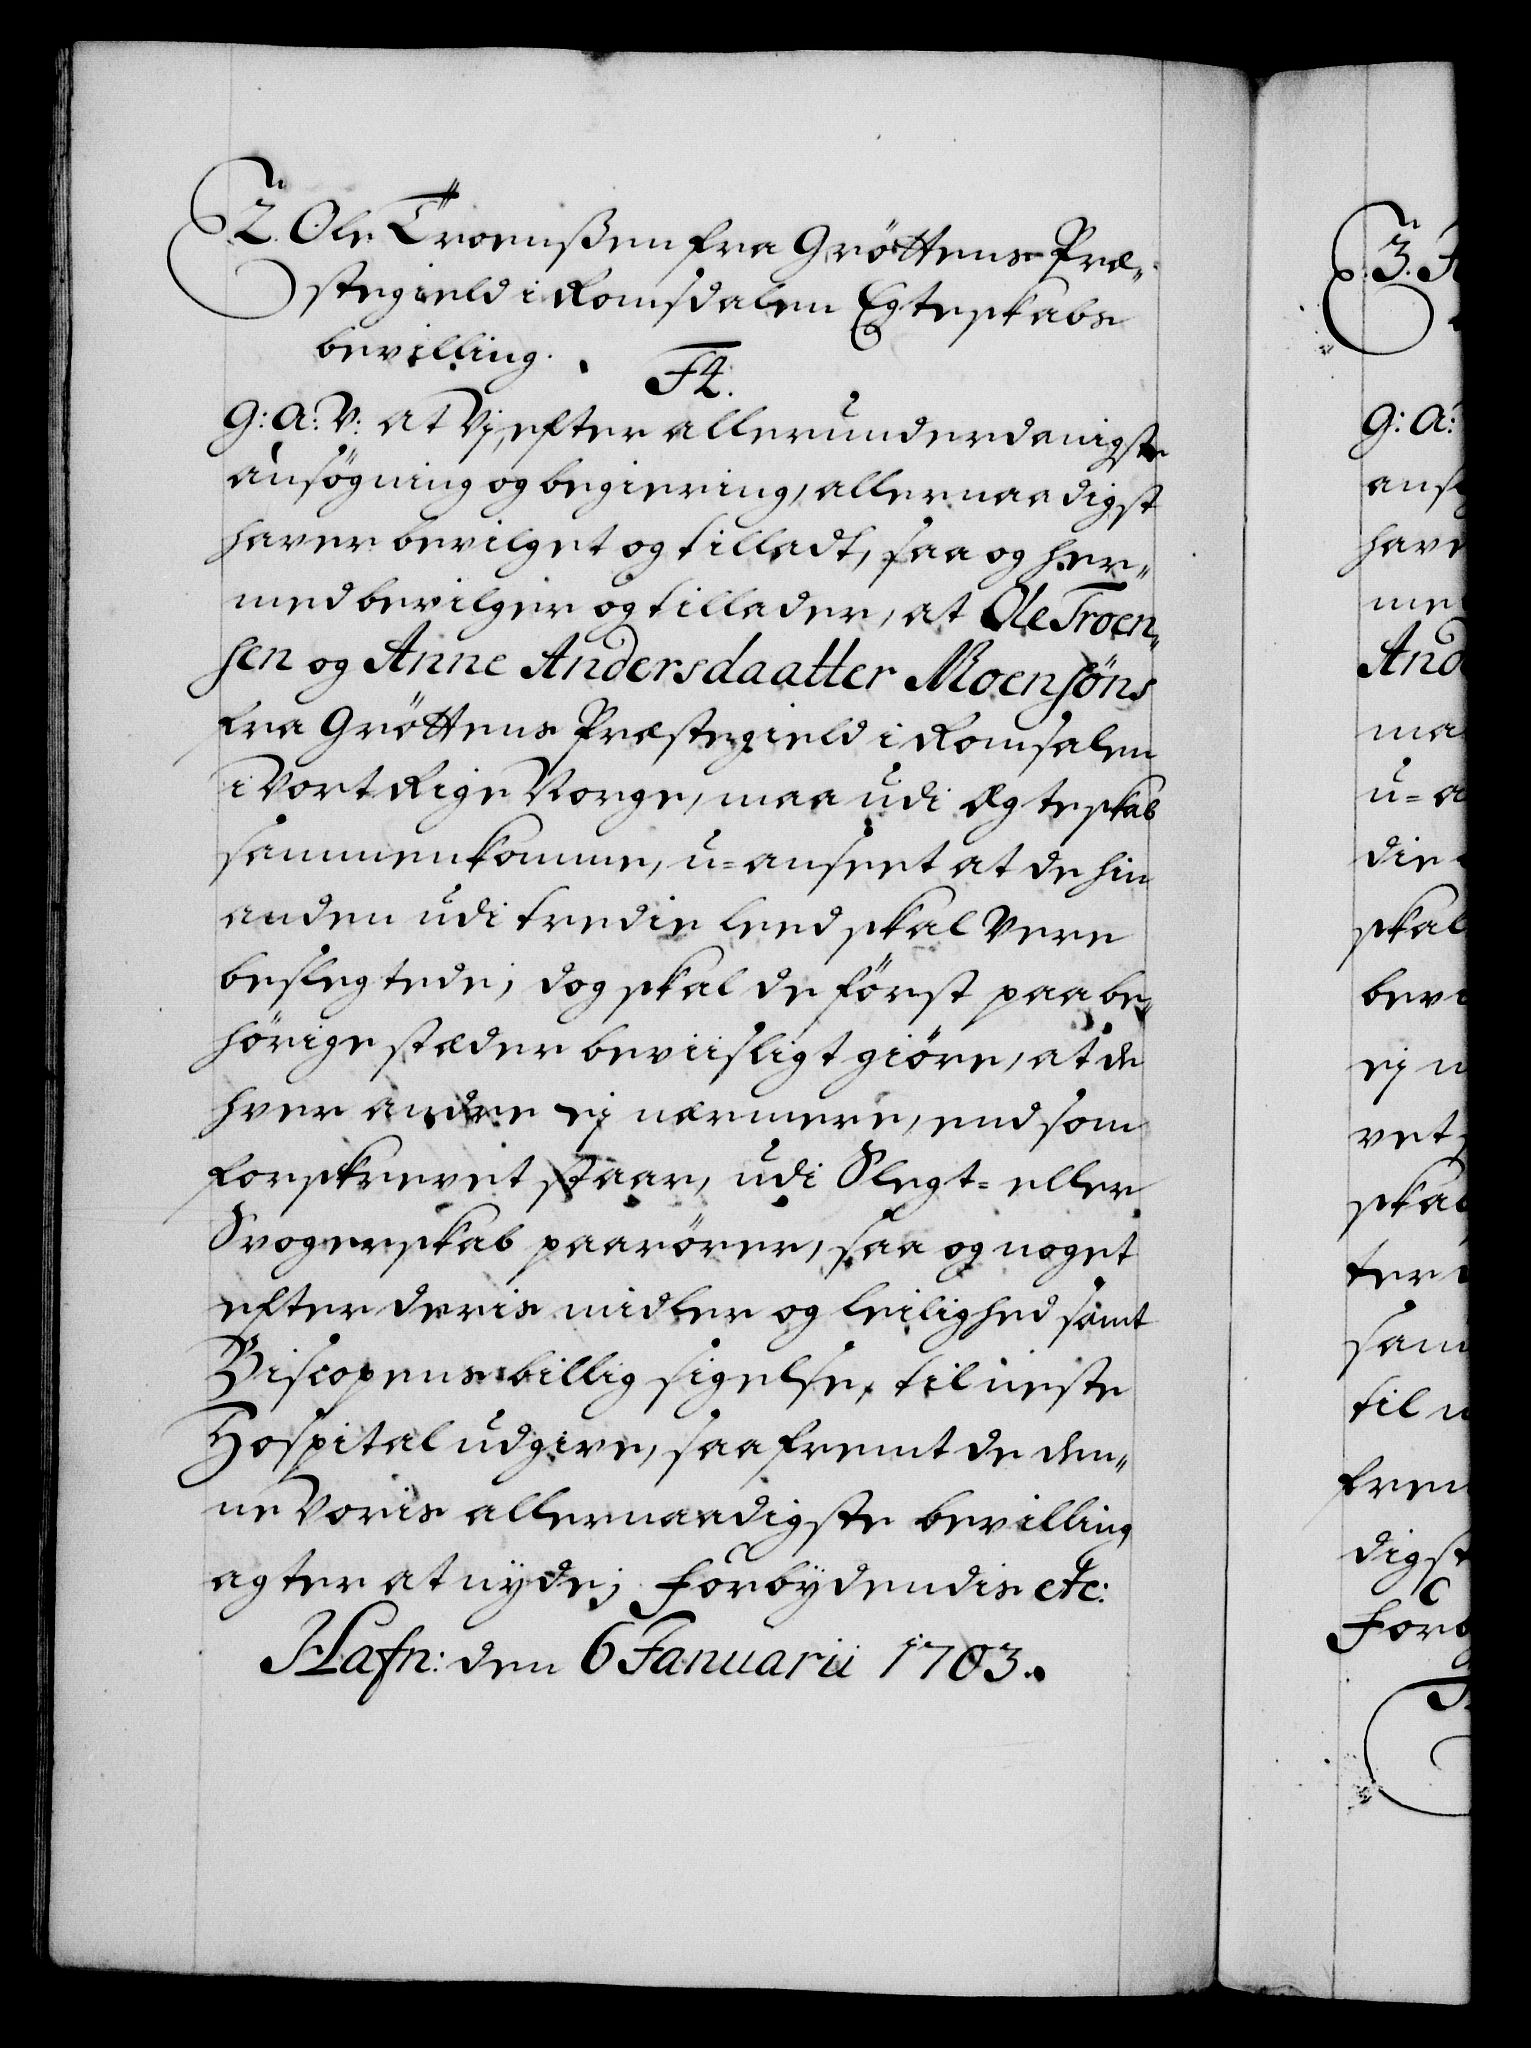 2. Ole Troenßen fra Gröttens Præ„
stegield i Romsdalen Egteskabs
bevilling.
F4.
G: A: V: at Vj, efter allerunderdanigste
ansögning og begiering, allernaadigst
haver bevilget og tilladt, saa og her„
med bevilger og tillader, at Ole Troen„
sen og Anne Andersdaatter Moensöns
fra Gröttens Præstegield i Romsalen
i Vort Rige Norge, maa udi Ægteskab
sammenkomme, u=anseet at de hin
anden udi tredie leed skal Vere
beslegtede; dog skal de först paa be„
hörige stæder beviisligt giöre, at de
hver andre ej nærmere, end som
forskrevet staar, udi Slegt= eller
Svogerskab paarörer, saa og noget
efter deris midler og leilighed samt
Biscopens billig sigelse, til neste
Hospital udgive, saafremt de den„
ne Voris allernaadigste bevilling
agter at nyde; Forbydendis etc:
Hafn: den 6 Januarii 1703.
3. F
G: A:
ans
have
me
And
ma
u=a
die
skal
bev
ej n
vet
skab
ter
sam
til n
frem
digst
Forb